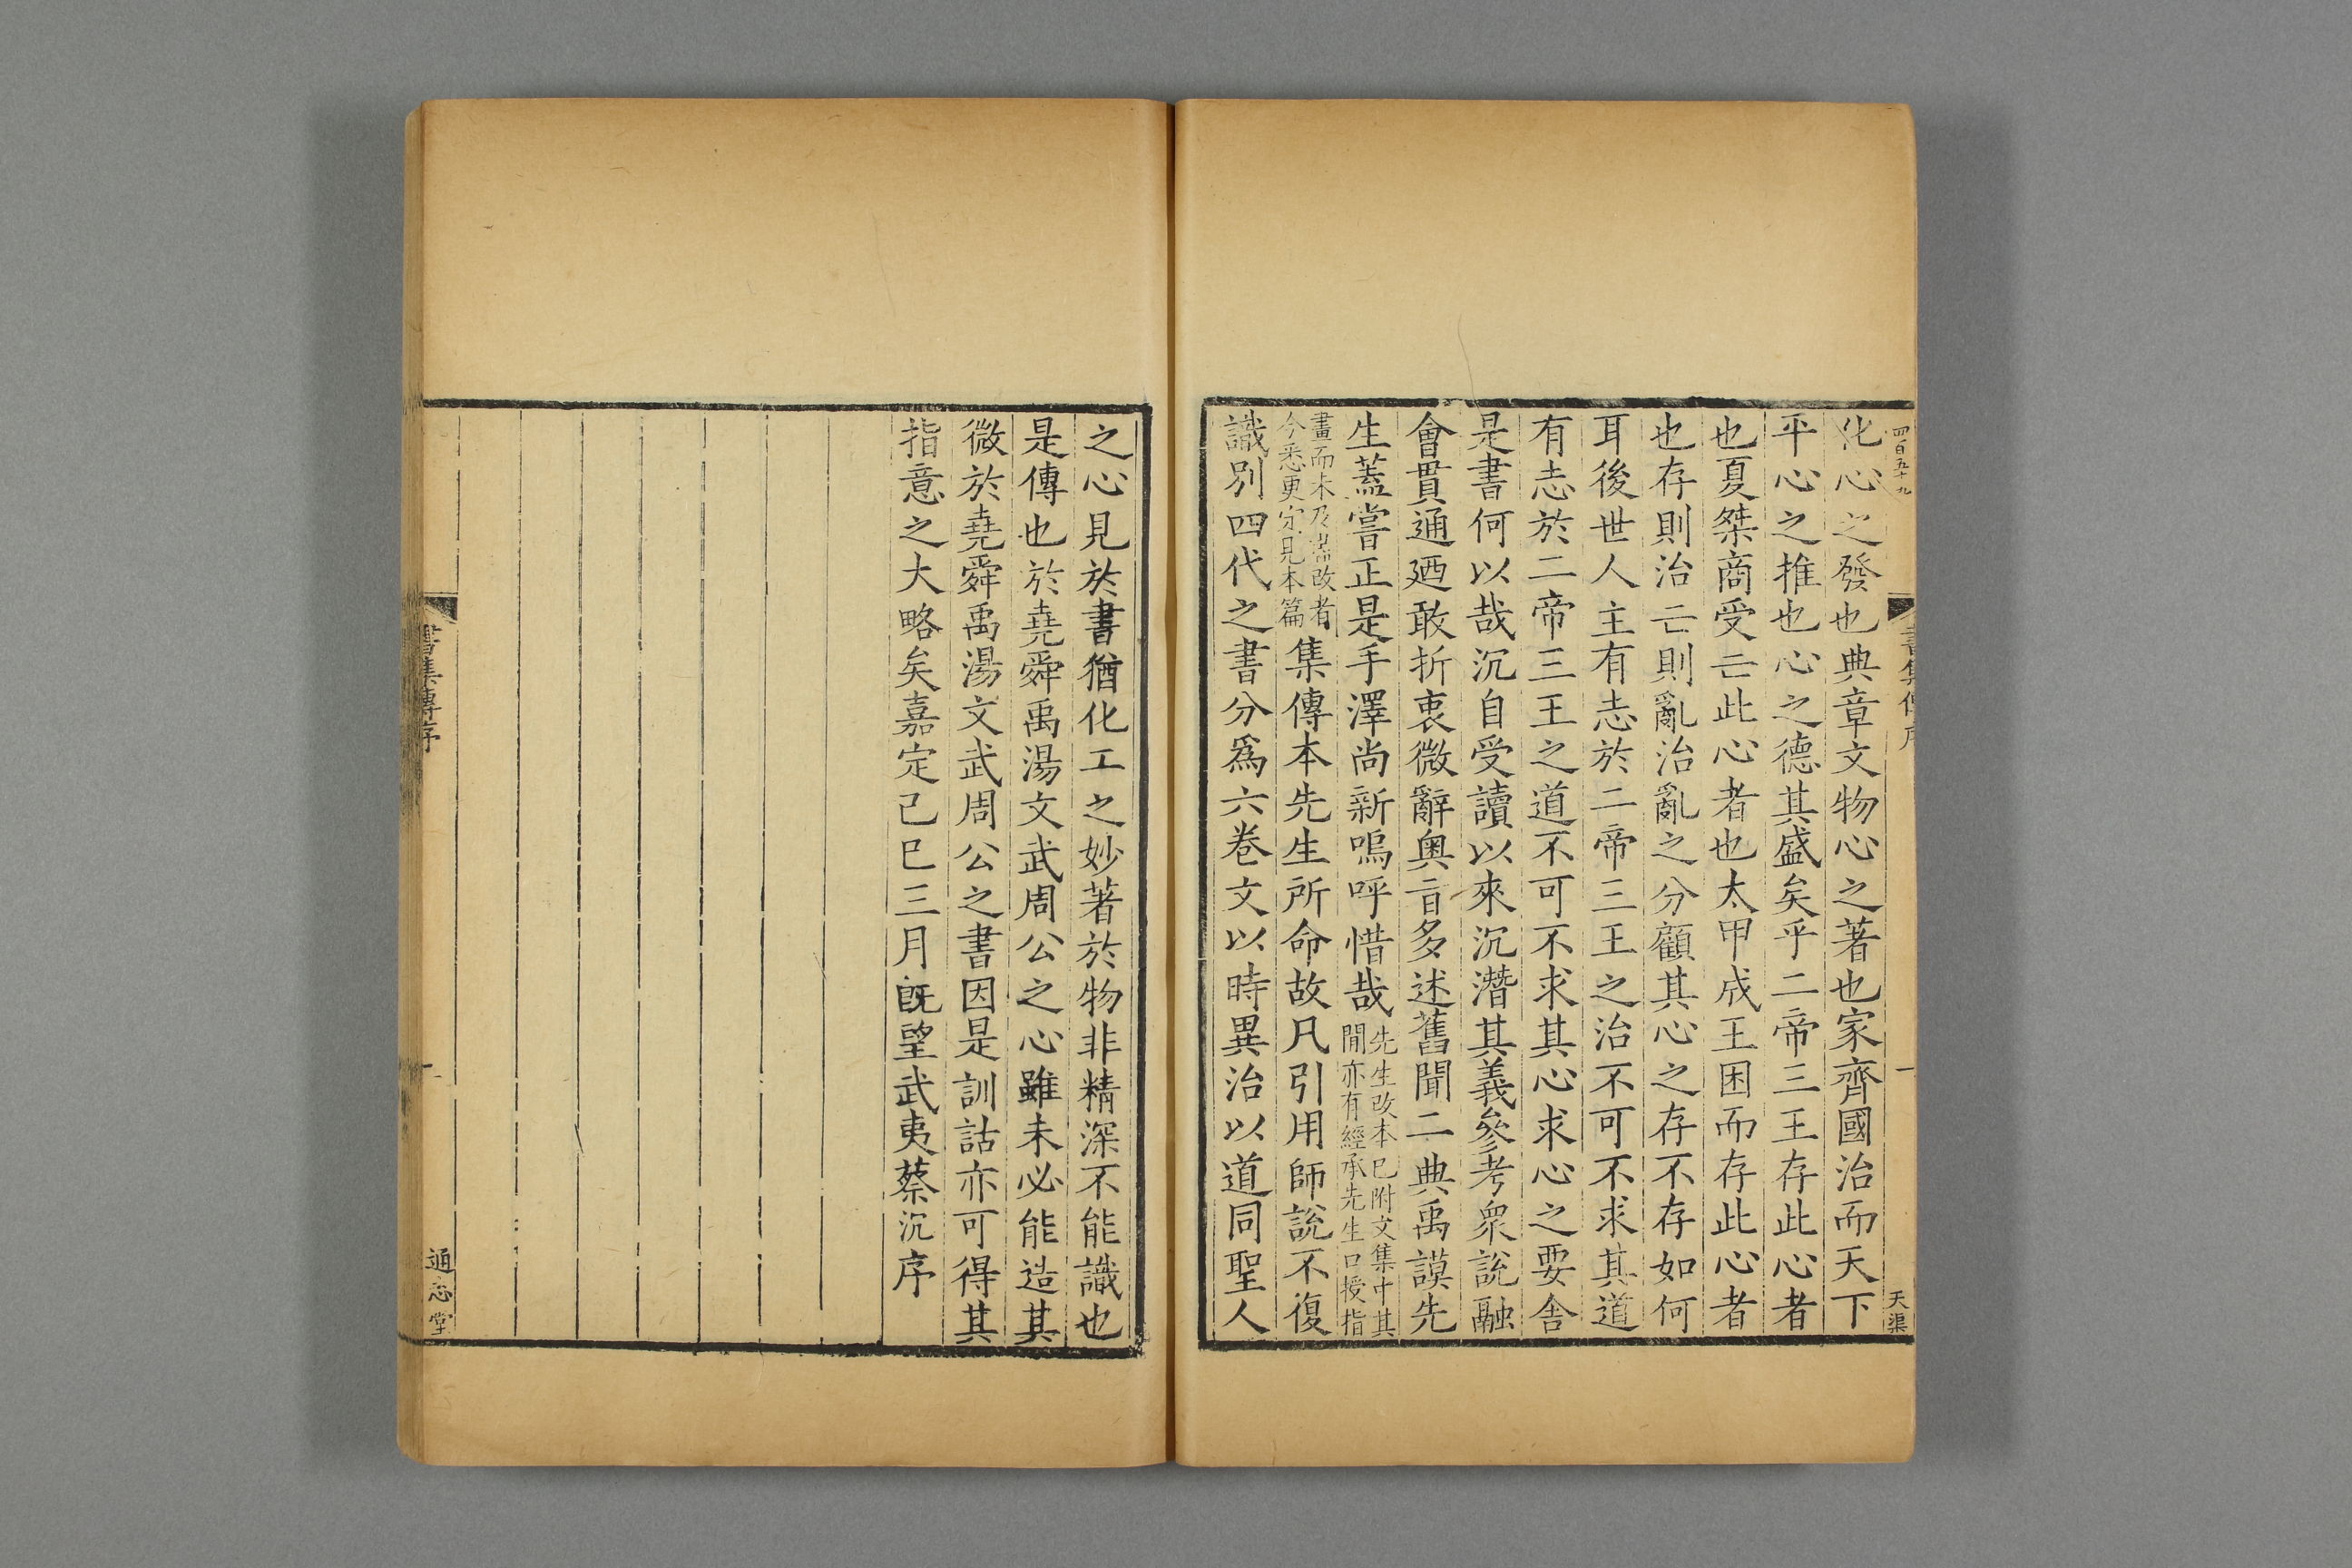 四百五十九
書集傳序
一
天渠
化心之發也典章文物心之著也家齊國治而天下
平心之推也心之德其盛矣乎二帝三王存此心者
也夏桀商受亡此心者也太甲成王困而存此心者
也存則治亡則亂治亂之分顧其心之存不存如何
耳後世人主有志於二帝三王之治不可不求其道
有志於二帝三王之道不可不求其心求心之要舍
是書何以哉沉自受讀以來沉潛其義參考衆說融
會貫通廼敢折衷微辭奥旨多述舊聞二典禹謨先
生蓋嘗正是手澤尚新嗚呼惜哉先生改本已附文集中其
間亦有經承先生口授指
畫而未及盡改者
今悉更定見本篇集傳本先生所命故凡引用師說不復
識別四代之書分爲六卷文以時異治以道同聖人
之心見於書猶化工之妙著於物非精深不能識也
是傳也於堯舜禹湯文武周公之心雖未必能造其
微於堯舜禹湯文武周公之書因是訓詁亦可得其
指意之大略矣嘉定己巳三月既望武夷蔡沉序
書集傳序
通志堂